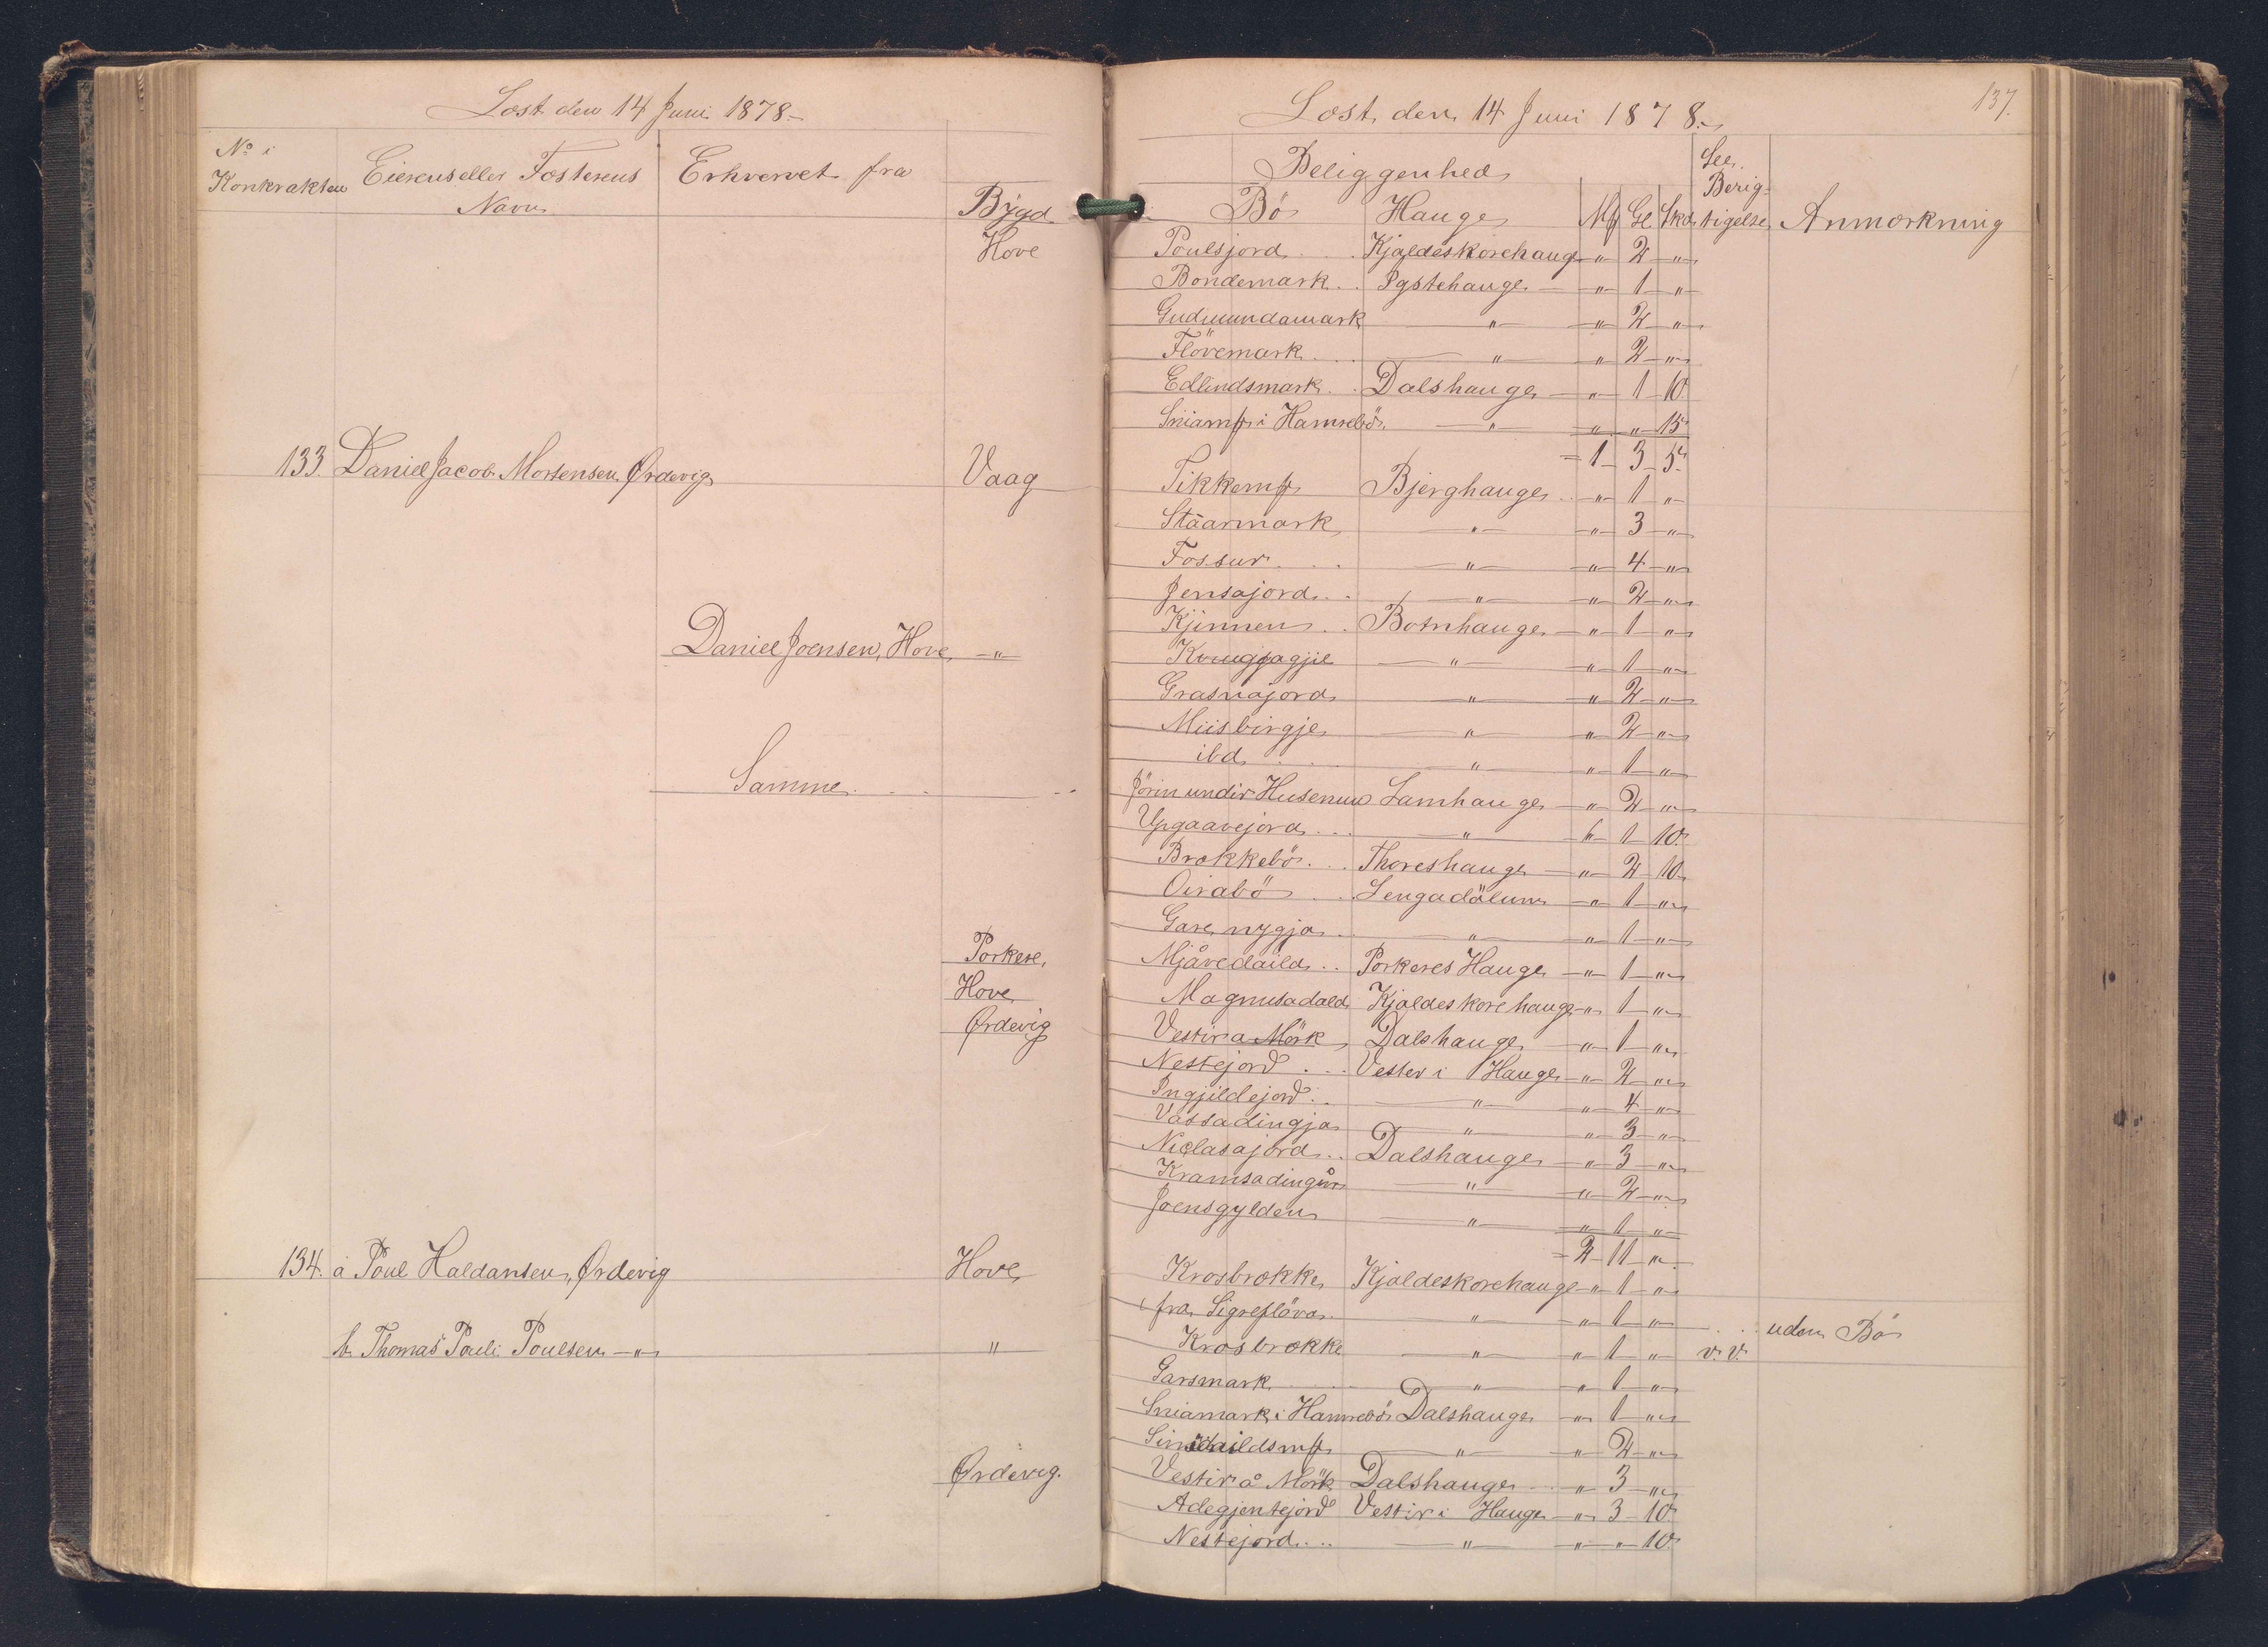 Læst den 14 Juni 1878.-
No i Kontrakten
Eierens eller Fæsterens Navn
Erhvervet fra
Bygd
Hove
133. Daniel Jacob Mortensen Ørdevig Vaag
Daniel Joensen, Hove, —"—
Samme . . . . .
Porkere,
Hove
Ørdevig
134. a Poul Haldansen, Ørdevig Hove
b. Thomas Pouli Poulsen —"— "
Ørdevig.
137.
Læst den 14 Juni 1878.-
Beliggenhed
See Berigtigelse
Bö Hauge Mk Gl Skd Anmærkning
Poulsjord . . . Kjaldeskorehauge " 2 "
Bondemark . . Pystehauge — " 1 "
Gudmundamark — " — " 2 "
Flövemark . . . — " — " 2 "
Edlindsmark . . Dalshauge — " 1 10
Sniamk i Hamrebö — " — " " 15
= 1 3 5
Tikkemk Bjerghauge . . " 1 "
Stäarmark — " — " 3 "
Fossur . . . — " — " 4 "
Jensajord . . — " — " 2 "
Kjinnen . . Botnhauge — " 1 "
— " — " 1 "
Grasnajord — " — " 2 "
Miisbirgje — " — " 2 "
ibd . . . — " — " 1 "
Jörin undir Husenum Lamhauge — " 2 "
Upgaavejord . . . — " — " 1 10
Brækkebö . . . Thoreshauge — " 2 10
Oirabö . . Lengadölum — " 1 "
Gare nygja . . — " — " 1 "
Mjåvedaild . . Porkeres Hauge — " 1 "
Magnusadald Kjaldeskorehauge " 1 "
Vestir a Mörk Dalshauge — " 1 "
Nestejord . . . Vester i Hauge — " 2 "
Ingjildejord . . — " — " 4 "
Vassadingja — " — " 3 "
Niclasajord . . Dalshauge — " 3 "
Kramsadingur — " — " 2 "
Joensgylden — " — " 1 "
= 2 11 "
Krosbrekke Kjaldeskorehauge " 1 "
fra Sigreflöva . — " — " 1 " . . . uden Bö
Krosbrekke — " — " 1 " v. v.
Garsmark . . . — " — " 1 "
Sniamark i Hamrebö Dalshauge — " 1 "
— " — " 2 "
Vestir å Mörk Dalshauge . . . " 3 "
Adegjentejord Vestir i Hauge — " 3 10
Nestejord . . . — " — " " 10